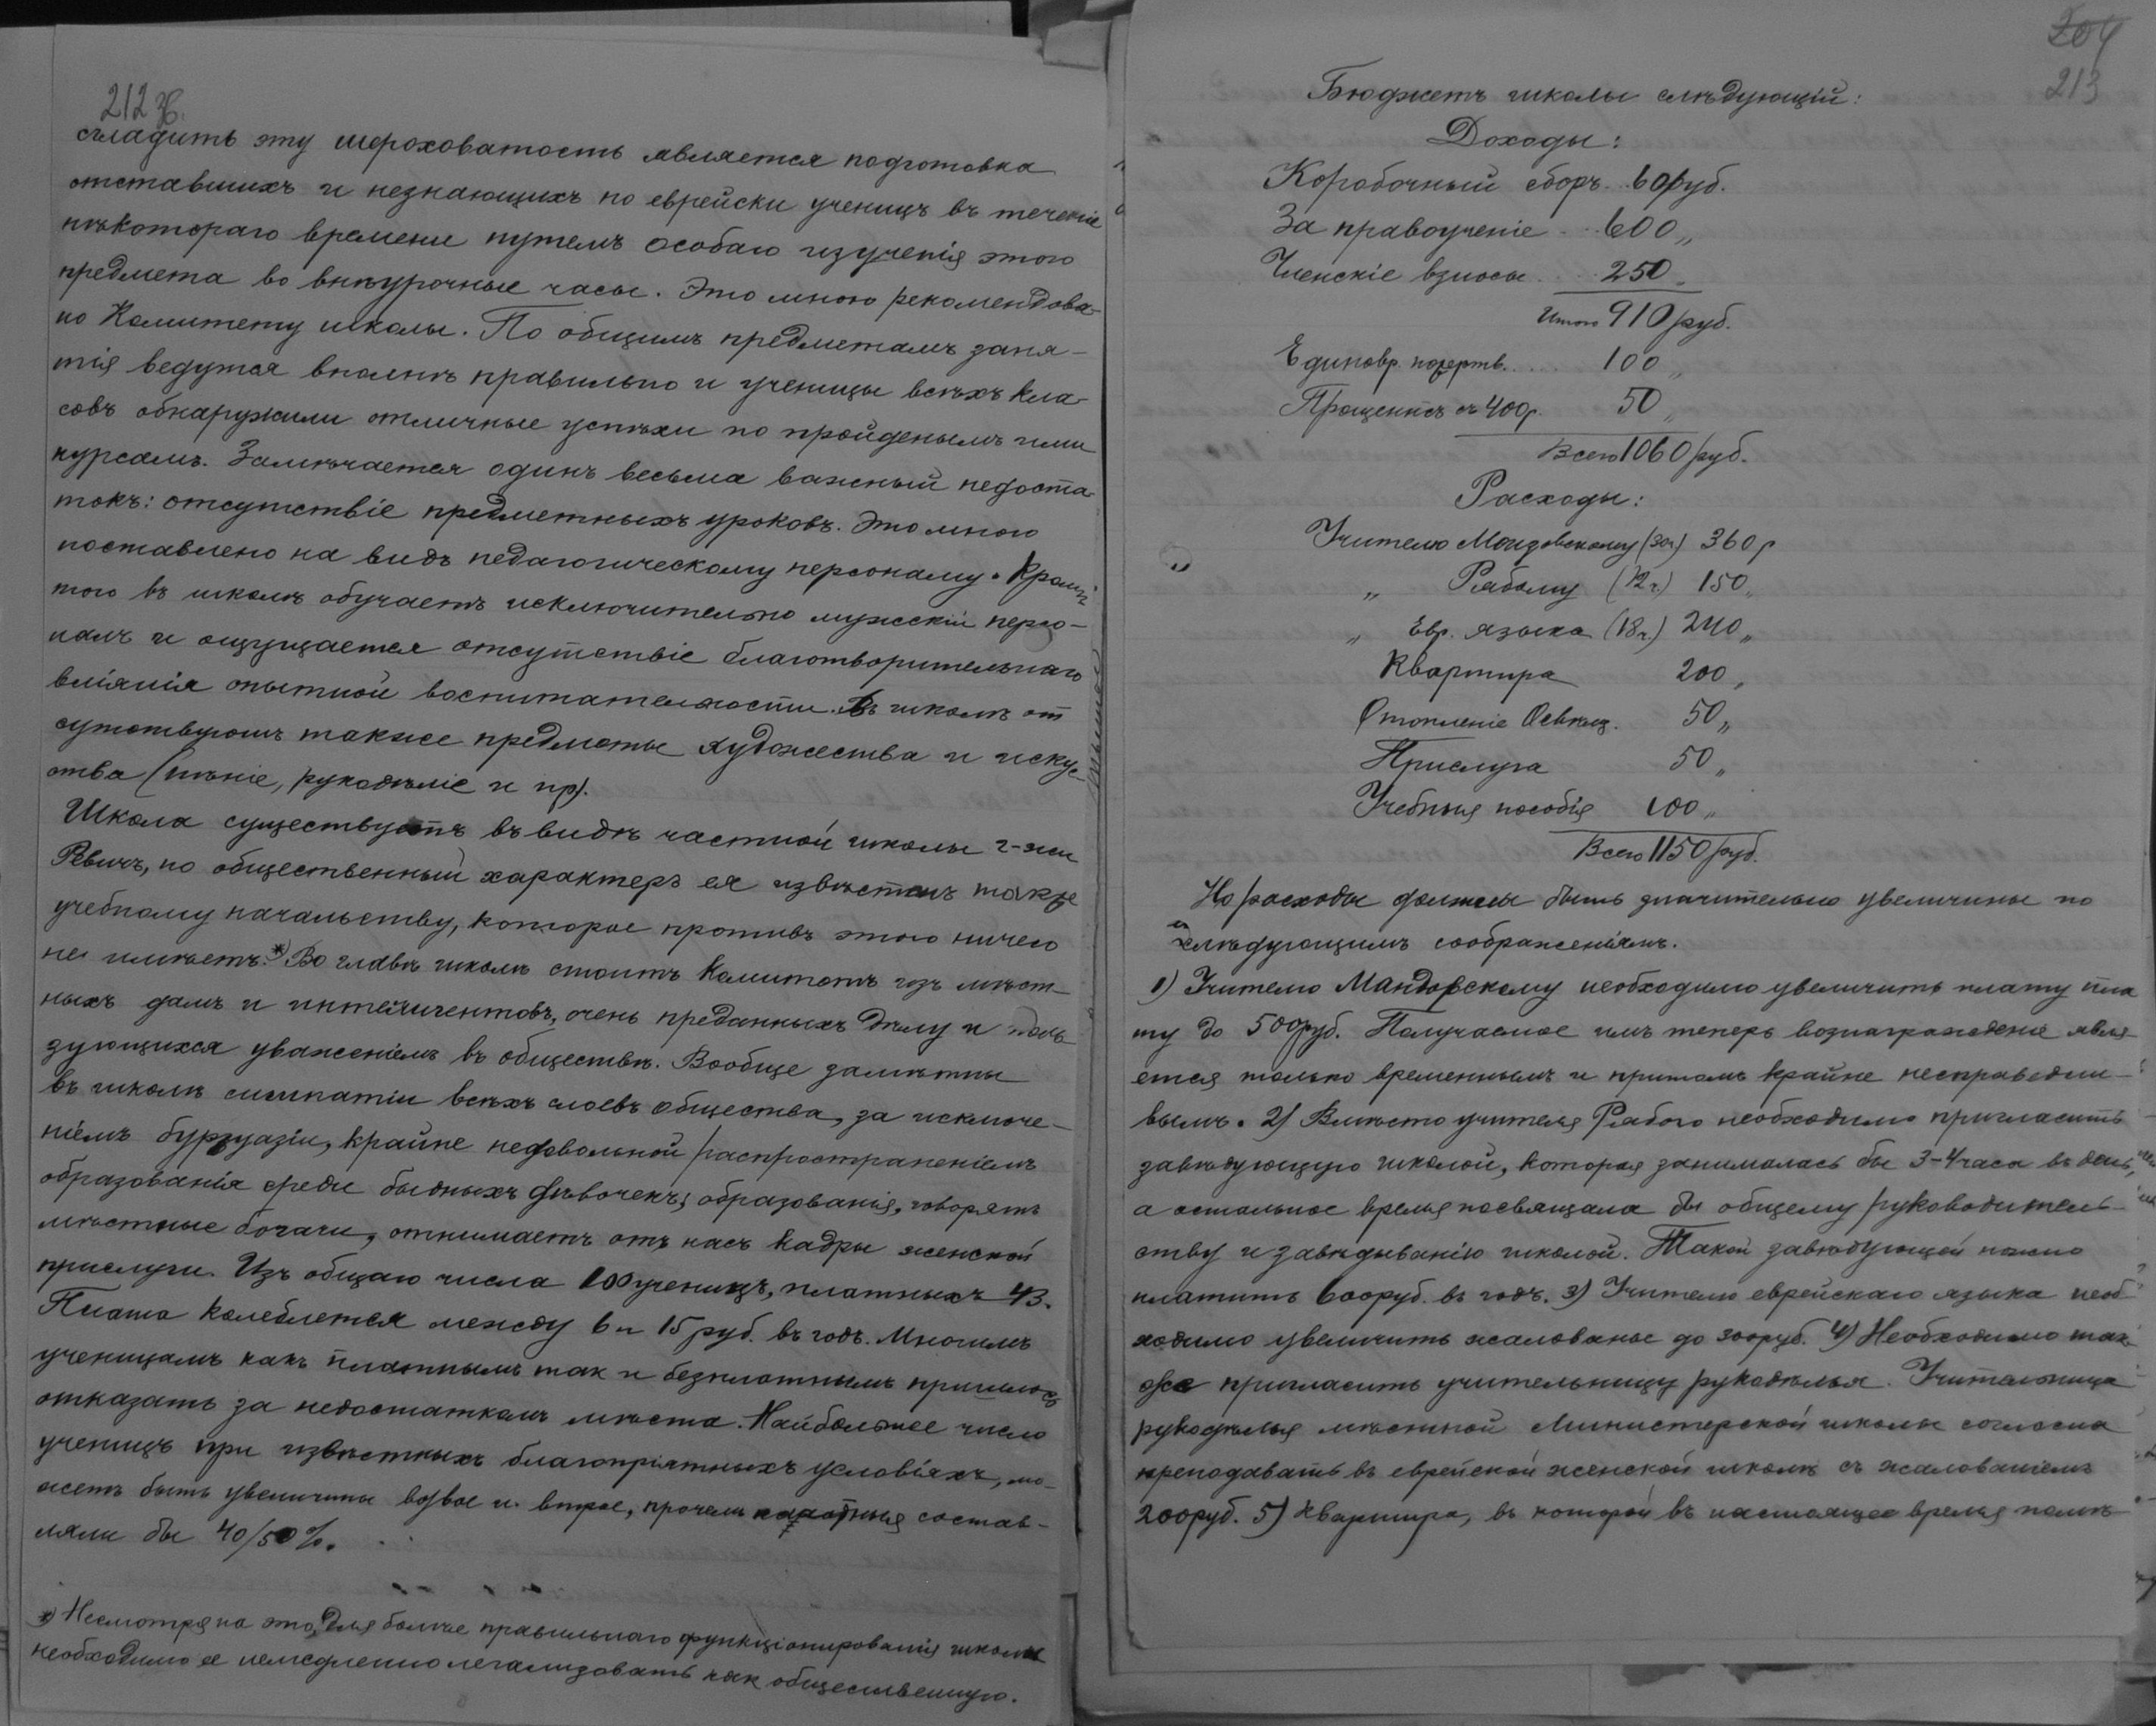 212 об.
сгладить эту шероховатость является подготовка
отставшихъ и незнающихъ по еврейски ученицъ въ теченіе
нѣкотораго времени путемъ особаго изученія этого
предмета во внѣурочные часы. Это мною рекомендова-
но Комитету школы. По общимъ предметамъ заня-
тія ведутся вполнѣ правильно и ученицы всѣхъ кла-
совъ обнаружили отличные успѣхи по пройденымъ ими
курсамъ. Замѣчается одинъ весьма важный недоста-
токъ: отсутствіе предметныхъ уроковъ. Это мною
поставлено на видъ педагогическому персоналу. Кромѣ
того въ школѣ обучаетъ исключительно мужскій персо-
налъ и ощущается отсутствіе благотворительнаго
вліянія опытной воспитательности. Въ школѣ от
сутствуютъ также предметы художества и искус-
ства (пѣніе, рукодѣліе и пр).
Школа существуетъ въ видѣ частной школы г-жи
Ревичъ, но общественный характеръ ея извѣстенъ также
учебному начальству, которое противъ этого ничего
не имѣетъ.*) Во главѣ школы стоитъ Комитетъ изъ мѣст-
ныхъ дамъ и интелигентовъ, очень преданныхъ дѣлу и поль-
зующихся уваженіемъ въ обществѣ. Вообще замѣтны
въ школѣ симпатіи всѣхъ слоевъ общества, за исключе-
ніемъ буржуазіи, крайне недовольной распространеніемъ
образованія среди бѣдныхъ дѣвочекъ; образованія, говорятъ
мѣстные богачи, отнимаетъ отъ насъ кадры женской
прислуги. Изъ общаго числа 100 ученицъ, платныхъ 43.
Плата колеблется между 6 и 15 руб. въ годъ. Многимъ
ученицамъ какъ платнымъ так и безплатнымъ пришлось
отказать за недостаткомъ мѣста. Наибольшее число
ученицъ при извѣстныхъ благопріятныхъ условіяхъ, мо-
жетъ быть увеличины вдвое и втрое, прочемъ состав-
ляли бы 40/50%.
*) Несмотря на это, для болѣе правильнаго функціонированія школы
необходимо ее немедленно легализовать как общественную.
204
213
Бюджетъ школы слѣдующій:
Доходы:
Коробочный сборъ .. 60 руб.
За правоученіе ... 600 „
Членскіе взносы ... 250 „
Итого 910 руб.
Единовр. пожертв. .... 100 „
Процентъ съ 400 р. 50 „
Всего 1060 руб.
Расходы:
Учителю (30 ч.) 360 р
„ Рябому (12 ч.) 150 „
„ Евр. языка (18 ч.) 240 „
Квартира 200 „
Отопленіе Освѣщ. 50 „
Прислуга 50 „
Учебныя пособія 100 „
Всего 1150 руб.
Но расходы должны быть значительно увеличины по
слѣдующимъ соображеніямъ.
1) Учителю Мандовскому необходимо увеличить плату пла
ту до 500 руб. Получаемое имъ теперь вознагражденіе явля-
ется только временнымъ и притомъ крайне несправедли-
вымъ. 2) Вмѣсто учителя Рябого необходимо пригласить
завѣдующую школой, которая занималась бы 3-4 часа въ день,
а остальное время посвящала бы общему руководитель-
ству и завѣдыванію школой. Такой завѣдующей можно
платить 600 руб. въ годъ. 3) Учителю еврейскаго языка необ-
ходимо увеличить жалованье до 300 руб. 4) Необходимо так
же пригласить учительницу рукодѣлья. Учительница
рукодѣлья мѣстной Министерской школы согласна
преподавать въ еврейской женской школѣ съ жалованіемъ
200 руб. 5) Квартира, въ которой въ настоящее время помѣ-